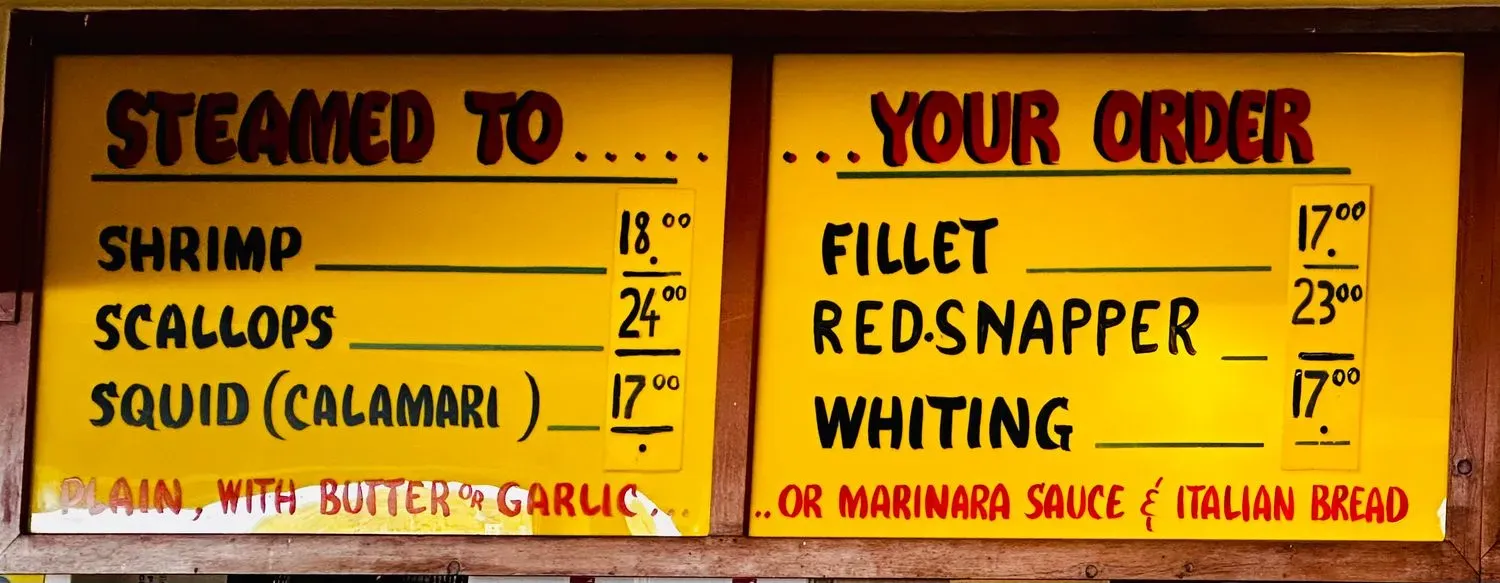 STEAMED TO.....
SHRIMP 18.00
SCALLOPS 24 00
SQUID (CALAMARI) 17 00
PLAIN, WITH BUTTER OR GARLIC...
...YOUR ORDER
FILLET 17.00
RED.SNAPPER 23 00
WHITING 17.00
..OR MARINARA SAUCE & ITALIAN BREAD